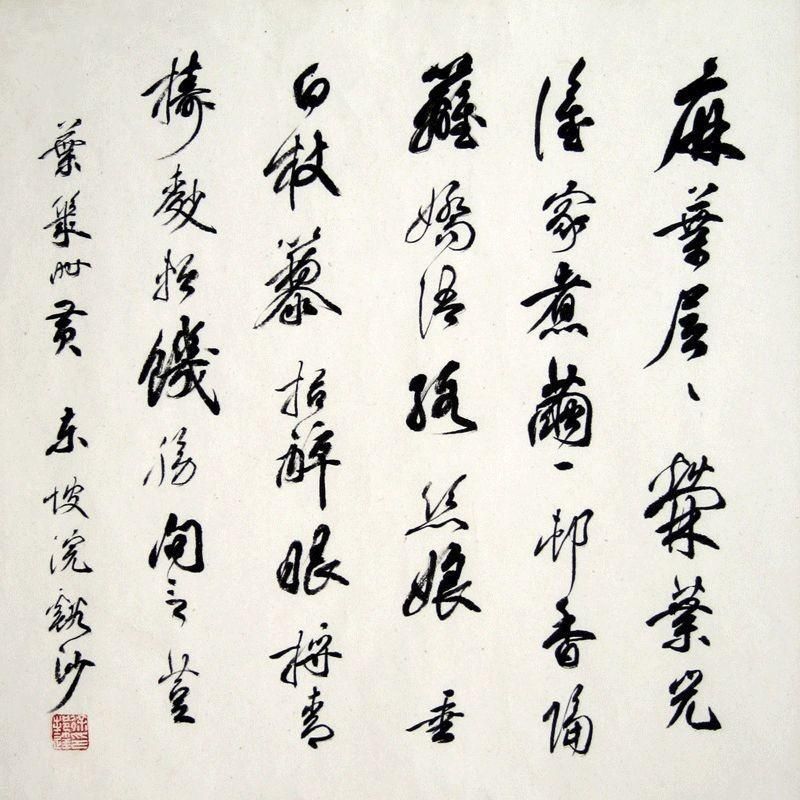 麻葉層〻檾葉光
誰家煮繭一邨香隔
籬嬌語絡丝娘垂
白杖藜抬醉眼捋青
擣麨輭饑腸問言荳
葉幾时黄 东坡浣谿沙